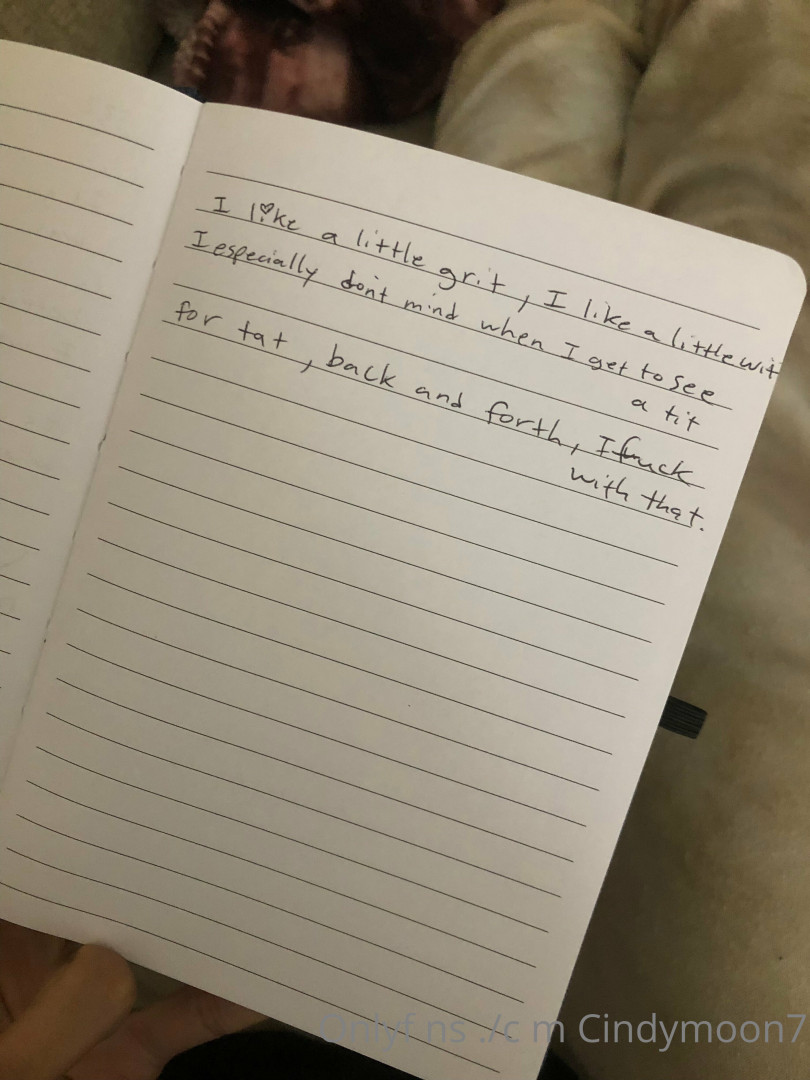 I like a little grit, I like a little wit
I especially don't mind when I get to see
a tit
for tat, back and forth, I fuck
with that.
Onlyf ns ./c m Cindymoon7